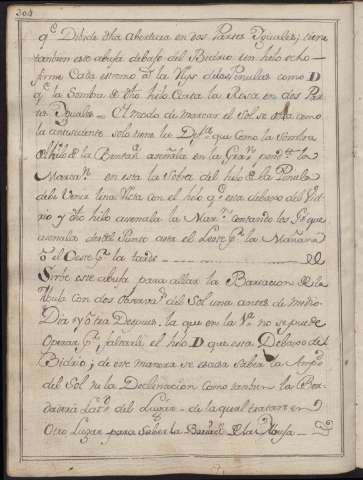 304
q.e Divide dha Abertura en dos Partes Yguales; tiene
tambien este abuja debajo del Bidrio un hilo echo
firme Cada estremo a la Ylus de las Pinulas como D
q.e la Sombra de dho hilo Corta la Rosa en dos Par
tes Yguales = El modo de marcar el Sol se hasa como
la antesedente solo tiene la Dif.a que como la Sombra
el hilo de la Bentan.a señala en la Gran
Marcan en esta la Sobra del hilo de la Penula
debe Venir Una Vista con el hilo q.e esta debaxo del Vid
rio y dho hilo señala la Mar.n Contando los G.s que
señala desde el Punto asta el Leste p.r la Mañana
ò el Oeste p.r la tarde
Sirbe este abuja para allar la Bariacion de la
Abuja con dos observas.s del Sol una antes de medio
Dia y otra Despues. la que en la no se puede
Operar p.r faltarle el hilo D que esta Debaxo del
Bidrio; y de ese manera se escusa Saber la Amp.d
del Sol ni la Declinacion como tambien la Ber
dadera Lat.d del Lugar = de la qual tratare en
Otro Lugar para Saber la de la Abuja